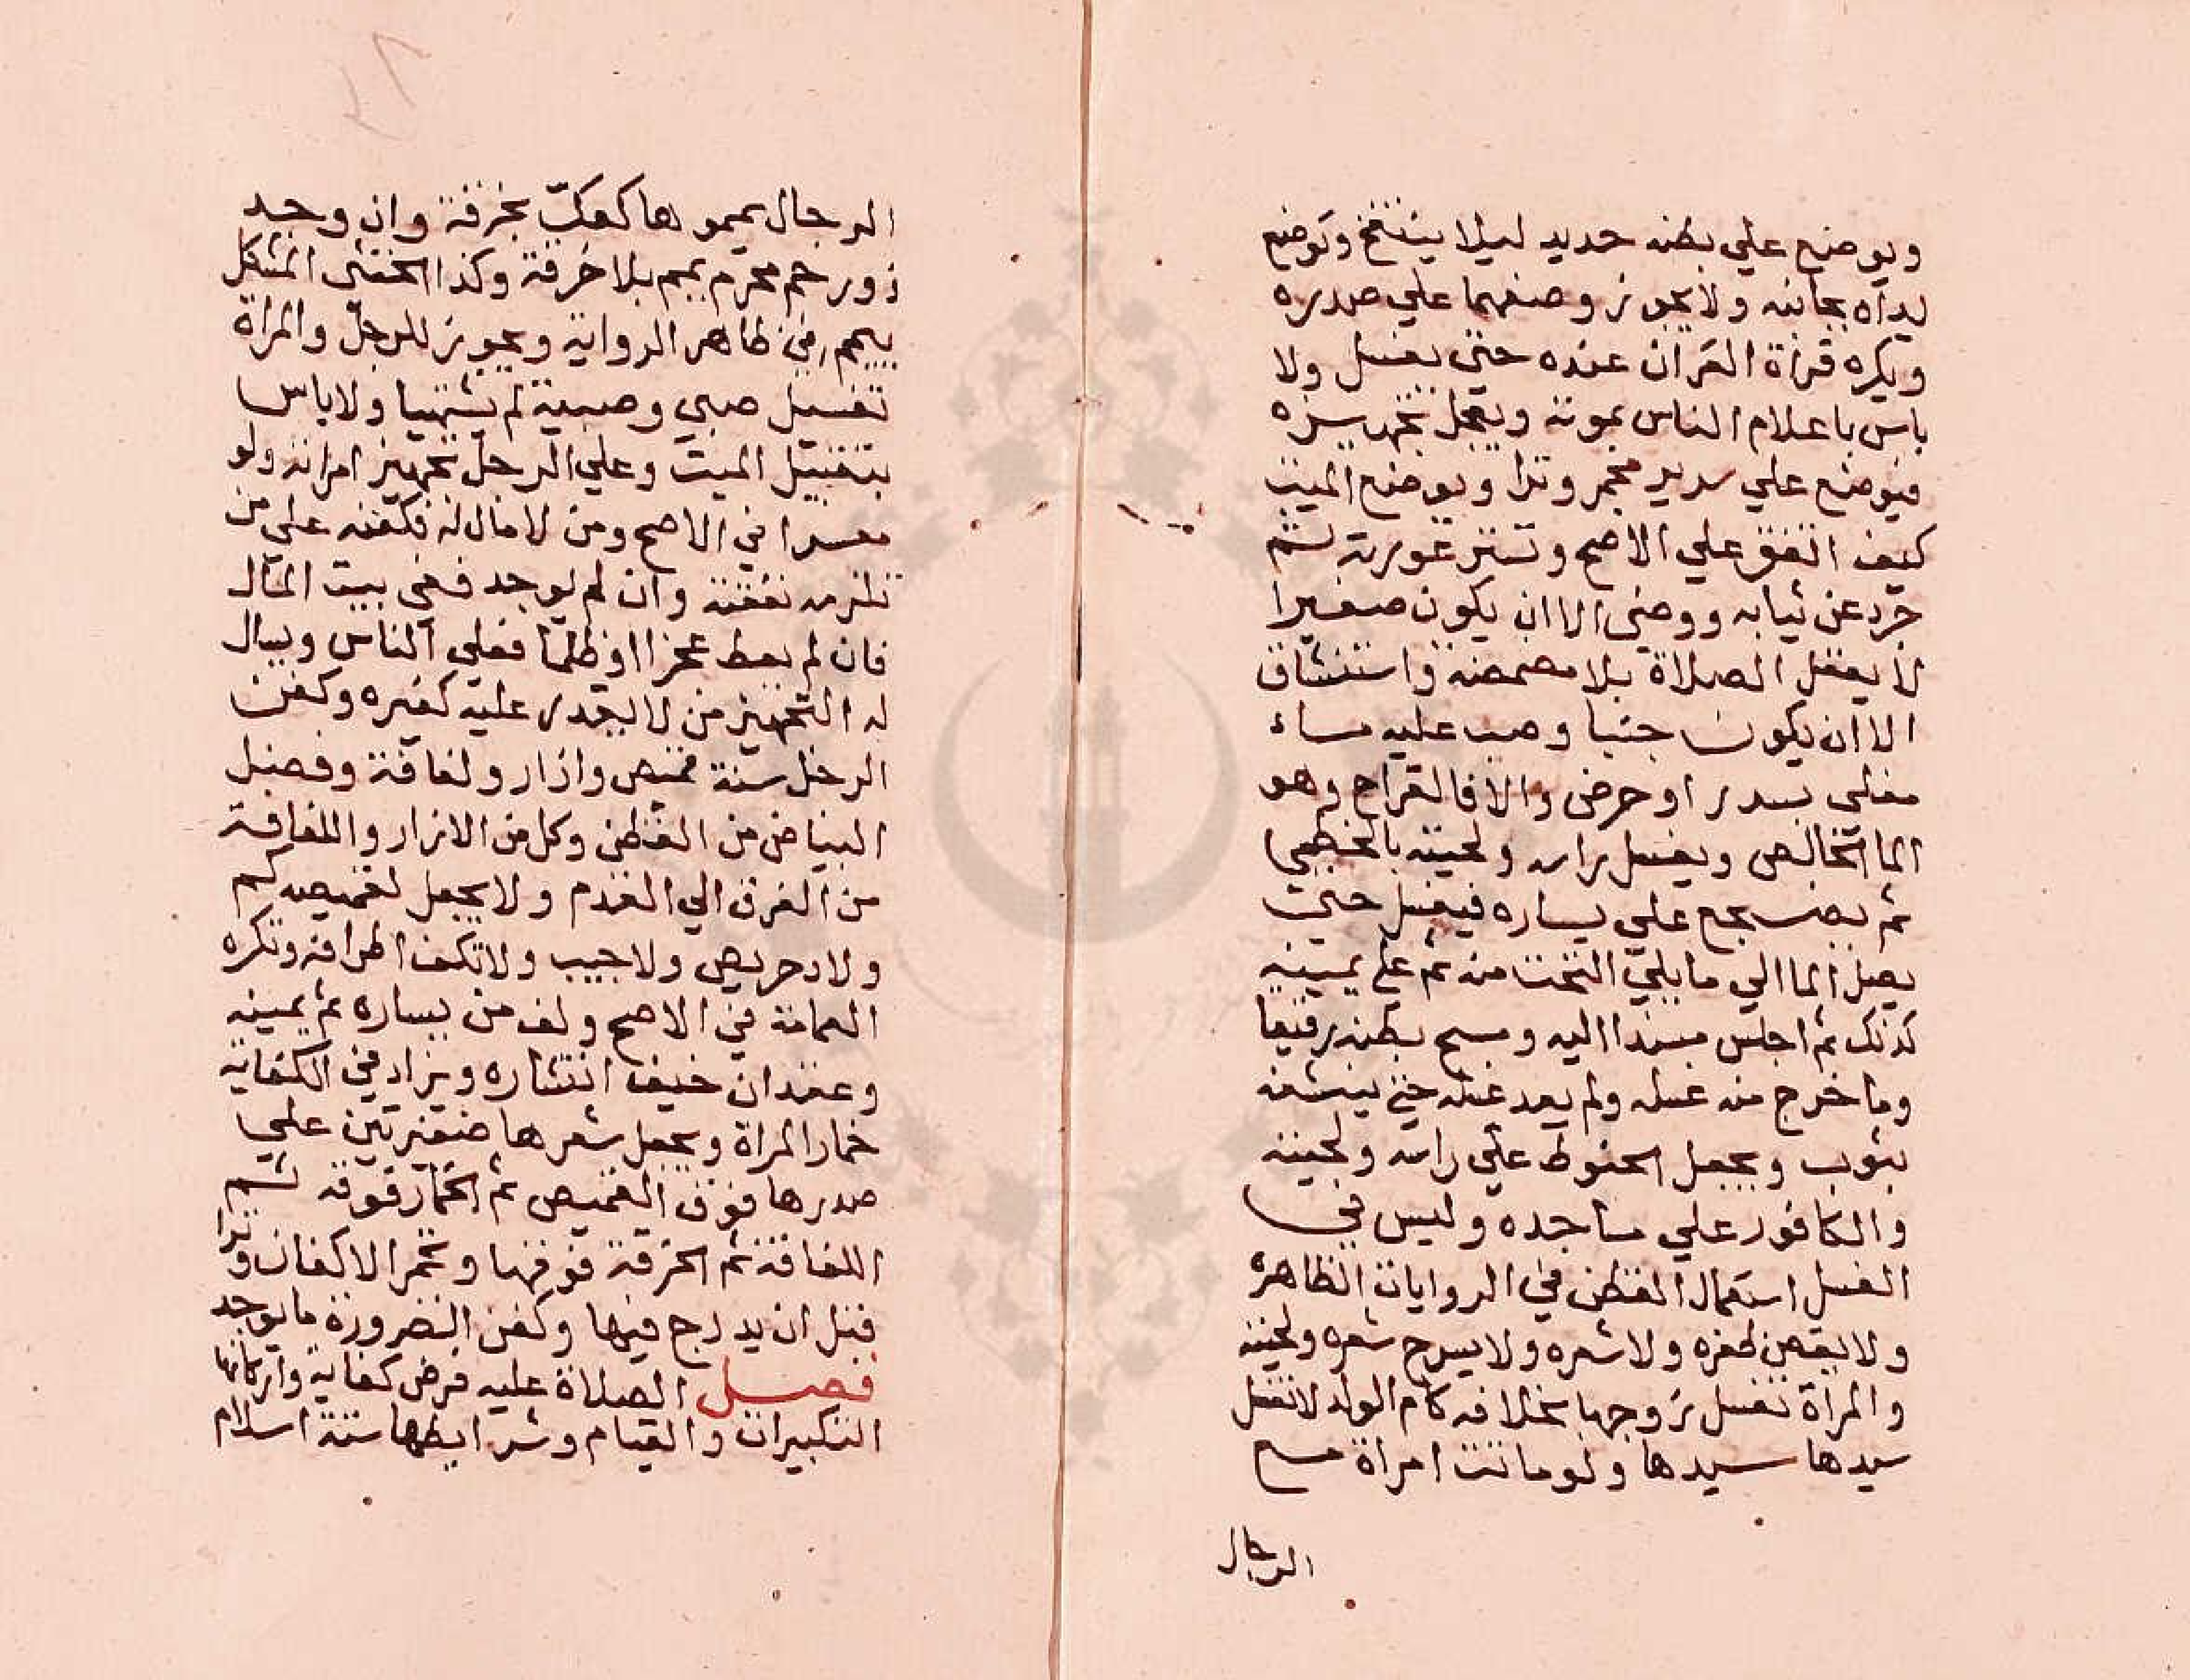 ويوضع علي بطنه حديد ليلا ينتفخ وتوضع
يداه بجانبه ولا يجوز وضعهما علي صدره
ويكره قراة القران عنده حتي يغسل ولا
باس باعلام الناس بموته ويعجل بتجهيزه
فيوضع علي سرير مجمر وترا ويوضع الميت
كيف اتفق علي الاصح وتستر عورته ثم
جرد عن ثيابه ووضي الا ان يكون صغيرا
لا يعقل الصلاة بلا مضمضة واستنشاق
الا ان يكون جنبا وصب عليه ماء
مغلي بسدر او حرض والا فالقراح وهو
الما الخالص ويغسل راسه ولحيته بالخطمي
ثم يضجع علي يساره فيغسل حتي
يصل الما الي ما يلي التخت منه ثم علي يمينه
كذلك ثم اجلس مسندا اليه ومسح بطنه رفيقا
وما خرج منه غسله ولم يعد غسله حتي ينشفه
بثوب ويجعل الحنوط علي راسه ولحيته
والكافور علي مساجده وليس في
الغسل استعمال القطن في الروايات الظاهرة
ولا يقص ظفره ولا شعره ولا يسرح شعره ولحيته
والمراة تغسل زوجها بخلافه كام الولد لا تغسل
سيدها سيدها ولو ماتت امراة مع
الرجال
الرجال يمموها كعكسه بخرقة وان وجد
ذو رحم محرم يمم بلا خرقة وكذا الخنثي المشكل
ييمم في ظاهر الرواية ويجوز للرجل والمراة
تغسيل صبي وصبية لم يشتهيا ولا باس
بتقبيل الميت وعلي الرجل تجهيز امراته ولو
معسرا في الاصح ومن لا مال له فكفنه علي من
تلزمه نفقته وان لم يوجد ففي بيت المال
فان لم يعط عجزا او ظلما فعلي الناس ويسال
له التجهيز من لا يقدر عليه كغيره وكفن
الرجل سنة قميص وازار ولفافة وفضل
البياض من القطن وكل من الازار واللفافة
من الفرق الي القدم ولا يجعل لقميصه كم
ولا دخريص ولا جيب ولا تكف اطرافه وتكره
العمامة في الاصح ولف من يساره ثم يمينه
وعقد ان خيف انتشاره ويزاد في الكفاية
خمار المراة ويجعل شعرها ضفيرتين علي
صدرها فوق القميص ثم الخمار فوقه ثم
اللفافة ثم الخرقة فوقها وتجمر الاكفان وترا
قبل ان يدرج فيها وكفن الضرورة ما يوجد
فصل الصلاة عليه فرض كفاية واركانها
التكبيرات والقيام وشرايطها ستة اسلام